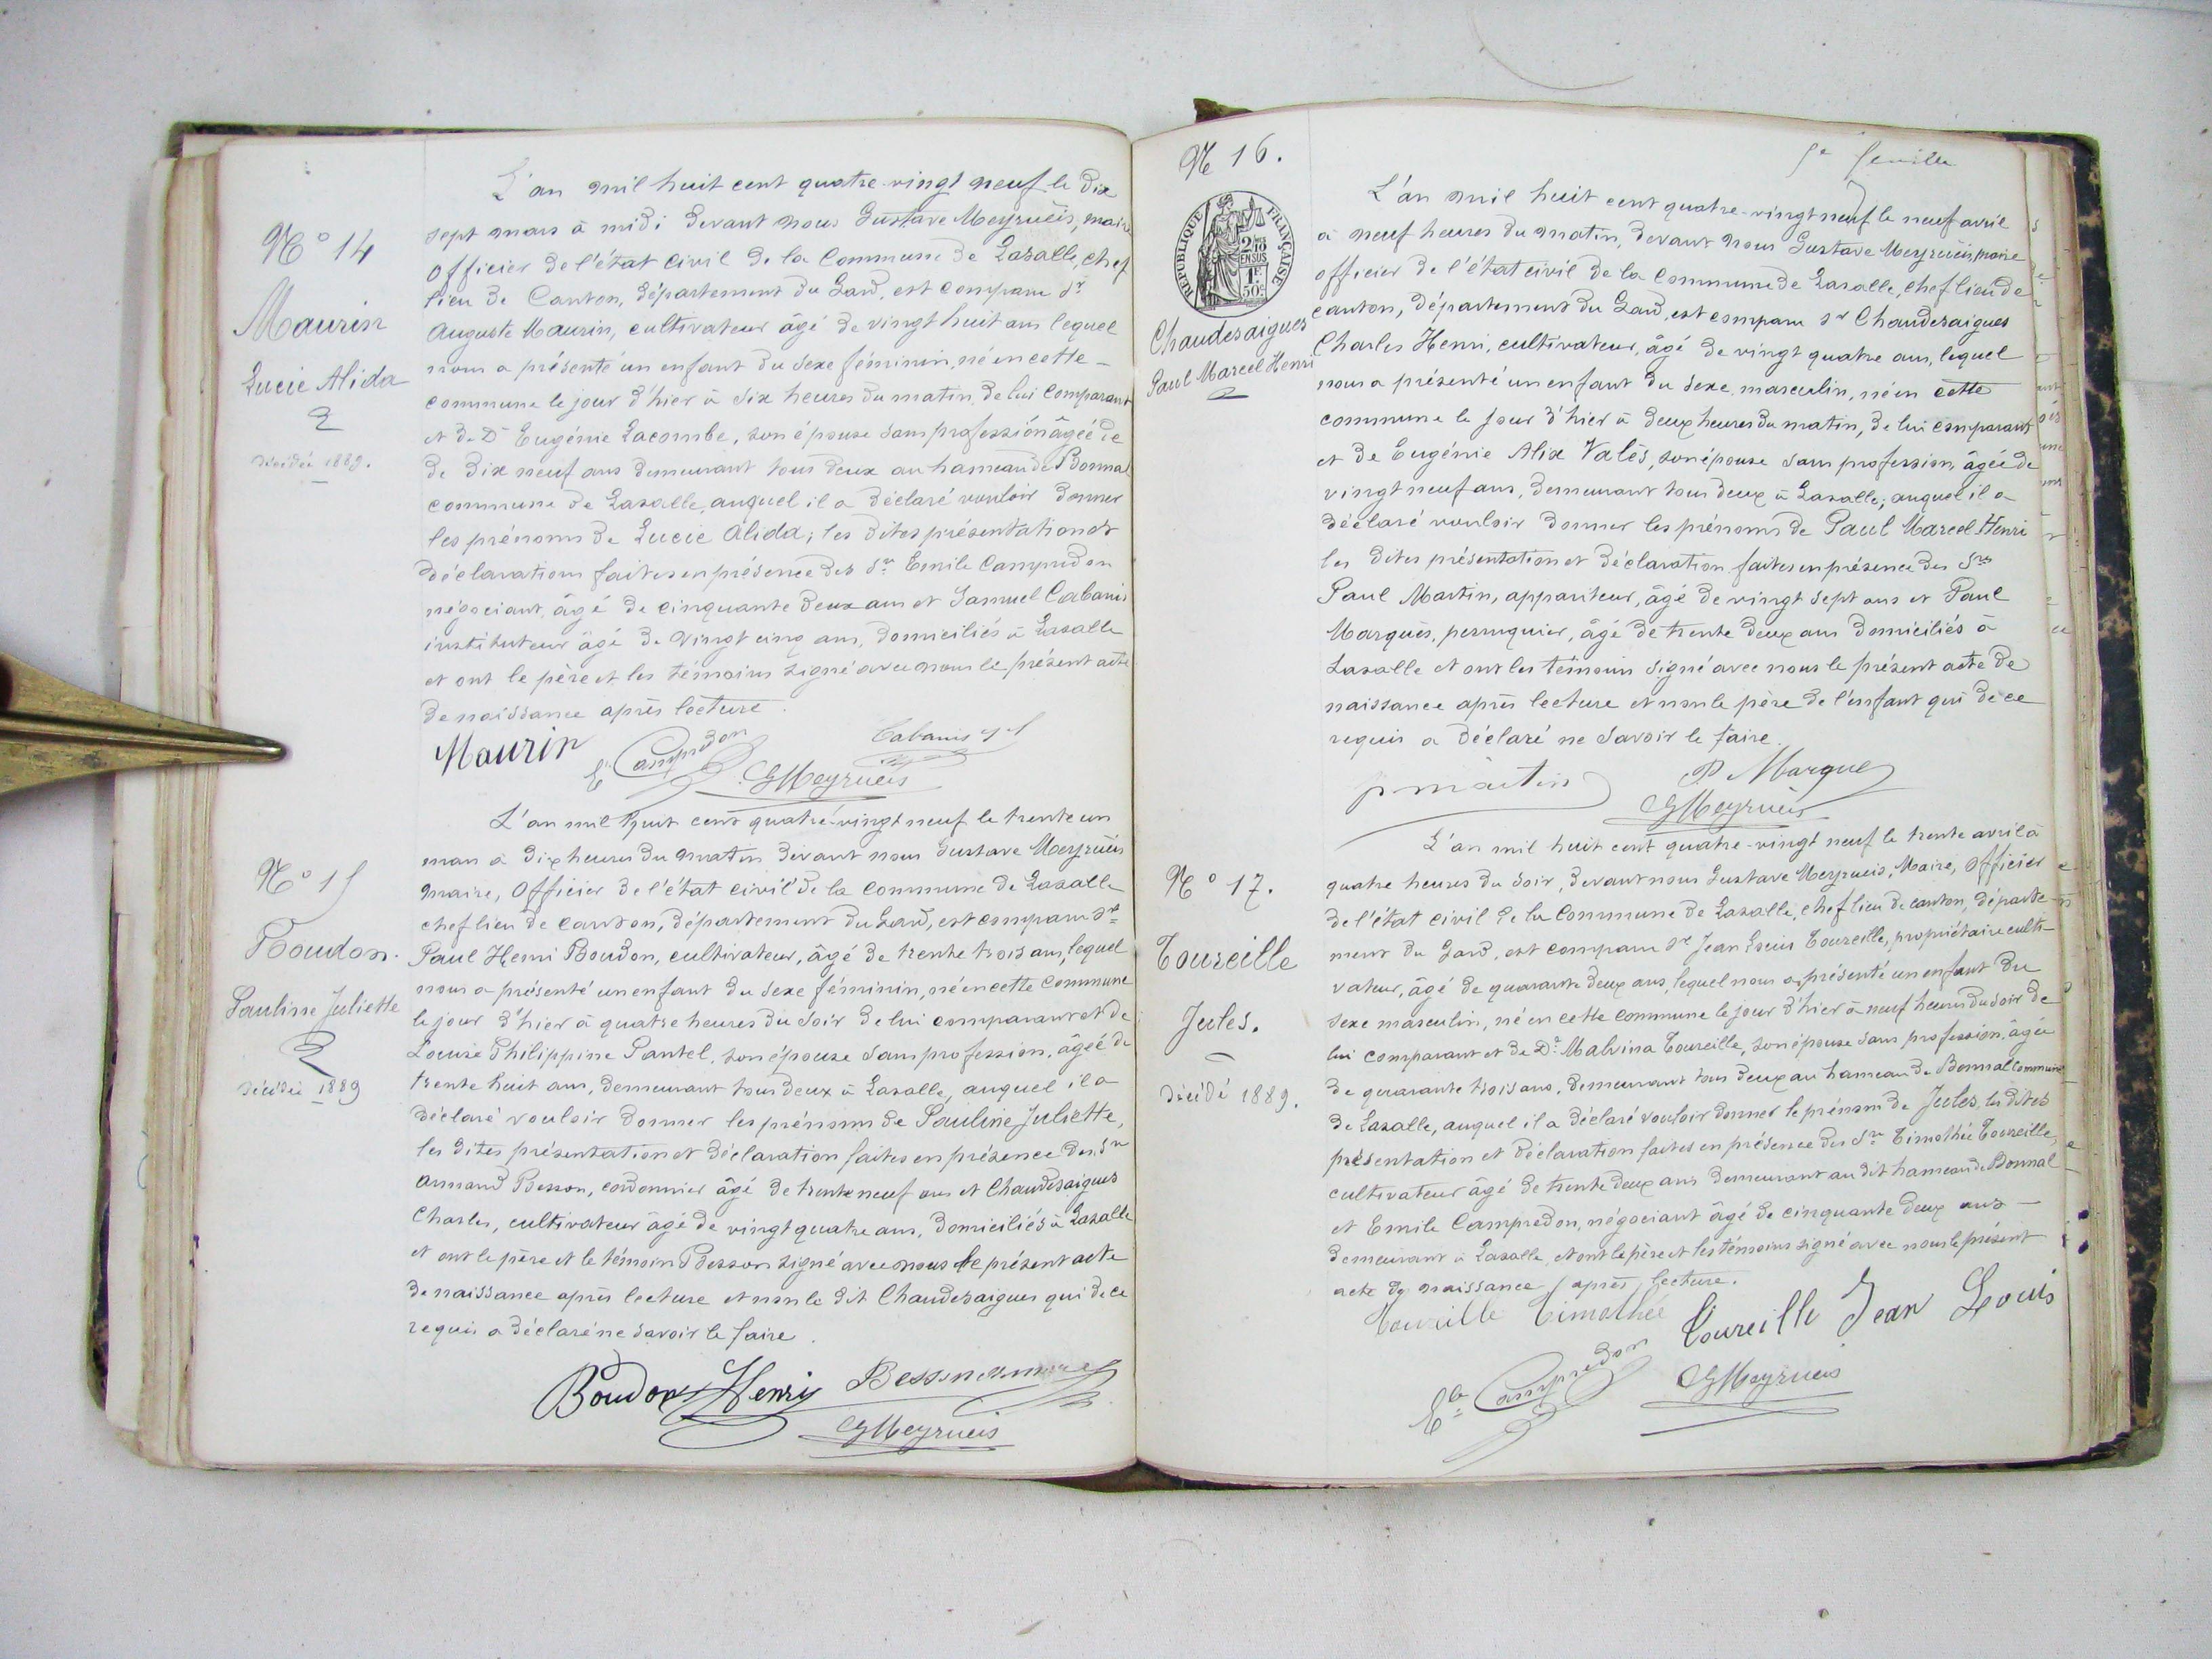 N° 14
Maurin
Lucie Alida
décédée 1889.
L'an mil huit cent quatre-vingt neuf le dix
sept mars à midi devant nous Gustave Meyrueis, maire
Officier de l'état civil de la Commune de Lasalle, chef
lieu de Canton, département du Gard, est comparu Sr
Auguste Maurin, cultivateur âgé de vingt huit ans lequel
nous a présenté un enfant du sexe féminin, né en cette
commune le jour d'hier à six heures du matin, de lui comparant
et de De Eugénie Lacombe, son épouse sans profession âgée de
de dix neuf ans demeurant tous deux au hameau de Bonnal
commune de Lasalle, auquel il a déclaré vouloir donner
les prénoms de Lucie Alida; les dites présentation et
déclaration faites en présence des Srs Emile Campredon
négociant, âgé de cinquante deux ans et Samuel Cabanis
instituteur âgé de vingt cinq ans, domiciliés à Lasalle
et ont le père et les témoins signé avec nous le présent acte
de naissance après lecture.
Maurin
E. Campredon
Cabanis
GMeyrueis
N° 15
Boudon.
Pauline Juliette
décédée 1889
L'an mil huit cent quatre-vingt neuf le trente un
mars à dix heures du matin devant nous Gustave Meyrueis
maire, Officier de l'état civil de la commune de Lasalle
chef lieu de canton, département du Gard, est comparu Sr
Paul Henri Boudon, cultivateur, âgé de trente trois ans, lequel
nous a présenté un enfant du sexe féminin, né en cette commune
le jour d'hier à quatre heures du soir de lui comparant et de
Louise Philippine Pantel, son épouse sans profession, âgée de
trente huit ans, demeurant tous deux à Lasalle, auquel il a
déclaré vouloir donner les prénoms de Pauline Juliette,
les dites présentation et déclaration faites en présence des Srs
Armand Besson, cordonnier âgé de trente neuf ans et Chaudesaigues
Charles, cultivateur âgé de vingt quatre ans, domiciliés à Lasalle
et ont le père et le témoin Besson signé avec nous le présent acte
de naissance après lecture et non le dit Chaudesaigues qui de ce
requis a déclaré ne savoir le faire.
Boudon Henry
Besson
GMeyrueis
5e feuille
N° 16.
RÉPUBLIQUE FRANÇAISE
2/10 EN SUS
1F 50c
Chaudesaigues
Paul Marcel Henri
L'an mil huit cent quatre-vingt neuf le neuf avril
à neuf heures du matin, devant nous Gustave Meyrueis, maire
officier de l'état civil de la Commune de Lasalle, chef lieu de
canton, département du Gard, est comparu Sr Chaudesaigues
Charles Henri, cultivateur, âgé de vingt quatre ans, lequel
nous a présenté un enfant du sexe masculin, né en cette
commune le jour d'hier à deux heures du matin, de lui comparant
et de Eugénie Alix Valès, son épouse sans profession, âgée de
vingt neuf ans, demeurant tous deux à Lasalle; auquel il a
déclaré vouloir donner les prénoms de Paul Marcel Henri
les dites présentation et déclaration faites en présence des Srs
Paul Martin, appariteur, âgé de vingt sept ans et Paul
Marquès, perruquier, âgé de trente deux ans domiciliés à
Lasalle et ont les témoins signé avec nous le présent acte de
naissance après lecture et non le père de l'enfant qui de ce
requis a déclaré ne savoir le faire.
p martin
P Marques
GMeyrueis
N° 17.
Toureille
Jules.
décédé 1889.
L'an mil huit cent quatre-vingt neuf le trente avril à
quatre heures du soir, devant nous Gustave Meyrueis, Maire, Officier
de l'état civil de la Commune de Lasalle, chef lieu de canton, départe-
ment du Gard, est comparu Sr Jean Louis Toureille, propriétaire culti-
vateur, âgé de quarante deux ans, lequel nous a présenté un enfant du
sexe masculin, né en cette commune le jour d'hier à neuf heures du soir de
lui comparant et de De Malvina Toureille, son épouse sans profession, âgée
de quarante trois ans, demeurant tous deux au hameau de Bonnal commune
de Lasalle, auquel il a déclaré vouloir donner le prénom de Jules, les dites
présentation et déclaration faites en présence des Srs Timothée Toureille,
cultivateur âgé de trente deux ans demeurant au dit hameau de Bonnal
et Emile Campredon, négociant âgé de cinquante deux ans
demeurant à Lasalle, et ont le père et les témoins signé avec nous le présent
acte de naissance après lecture.
Toureille Timothée
Toureille Jean Louis
Ele Campredon
GMeyrueis